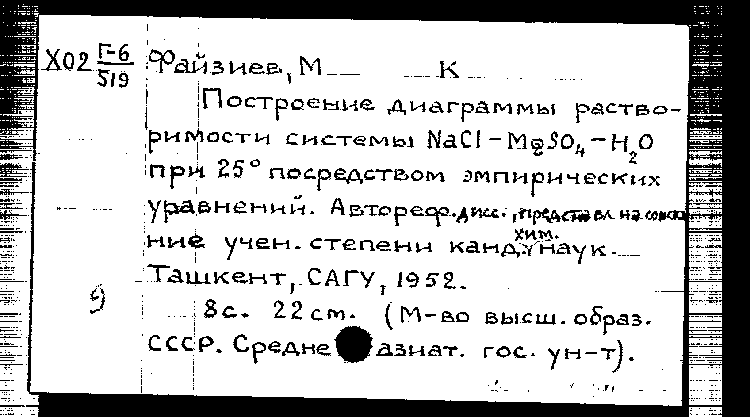 Х02 Г-6/519 Файзиев, М К
Построение диаграммы раство-
римости системы NaCl – MgSO4 – H2O
при 25° посредством эмпирических
уравнений. Автореф. дисс., представл. на соиска
хим.
ние учен. степени канд. наук.
Ташкент, САГУ, 1952.
9 8 с. 22 см. (М-во высш. образ.
СССР. Средне азиат. гос. ун-т).